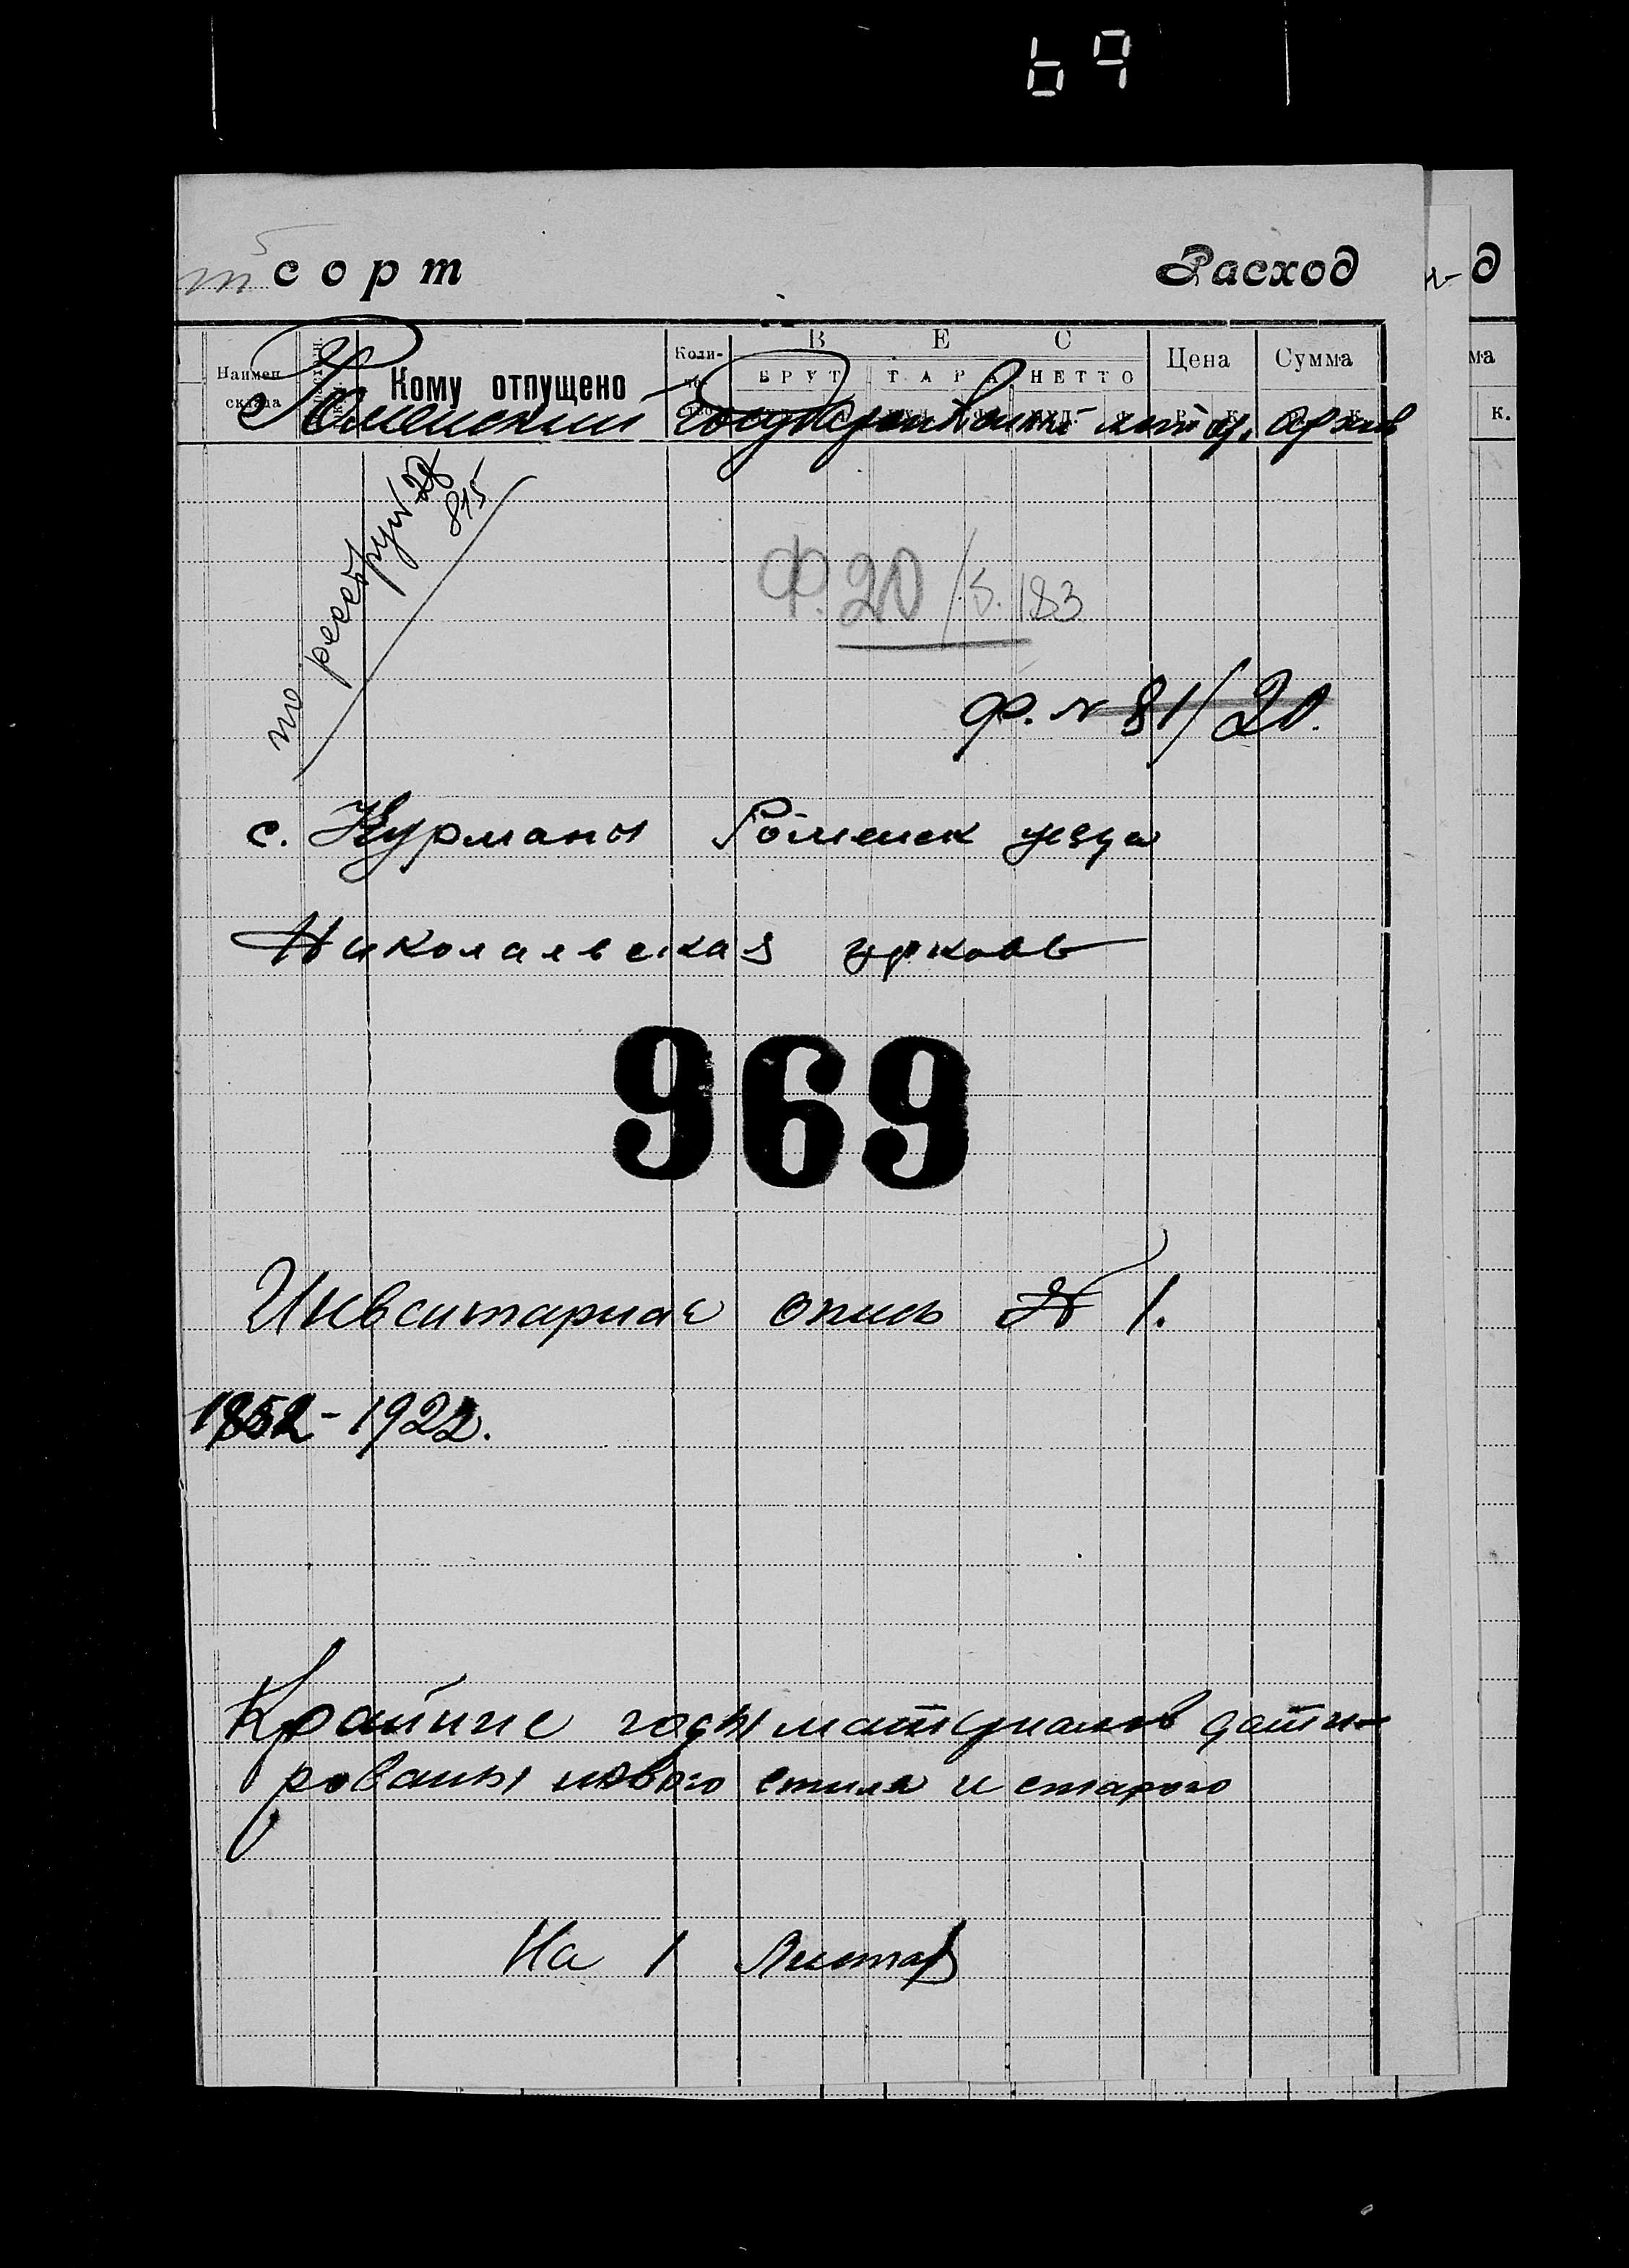 69
5
сорт
Расход
д
Наимен. склада
Кому отпущено
Коли-
ВЕС
БРУТ ТАРА НЕТТО
Цена
Сумма
ма
к.
Роменский государственный истор. архив
по реестру № 28
815
Ф. 20 /S. 183
Ф. № 81/20.
с. Курманы Роменск уезда
Николаевская церковь
969
Инвентарная опись № 1.
1852-1922.
Крайние годы материалов дати-
рованы нового стиля и старого
На 1 листах